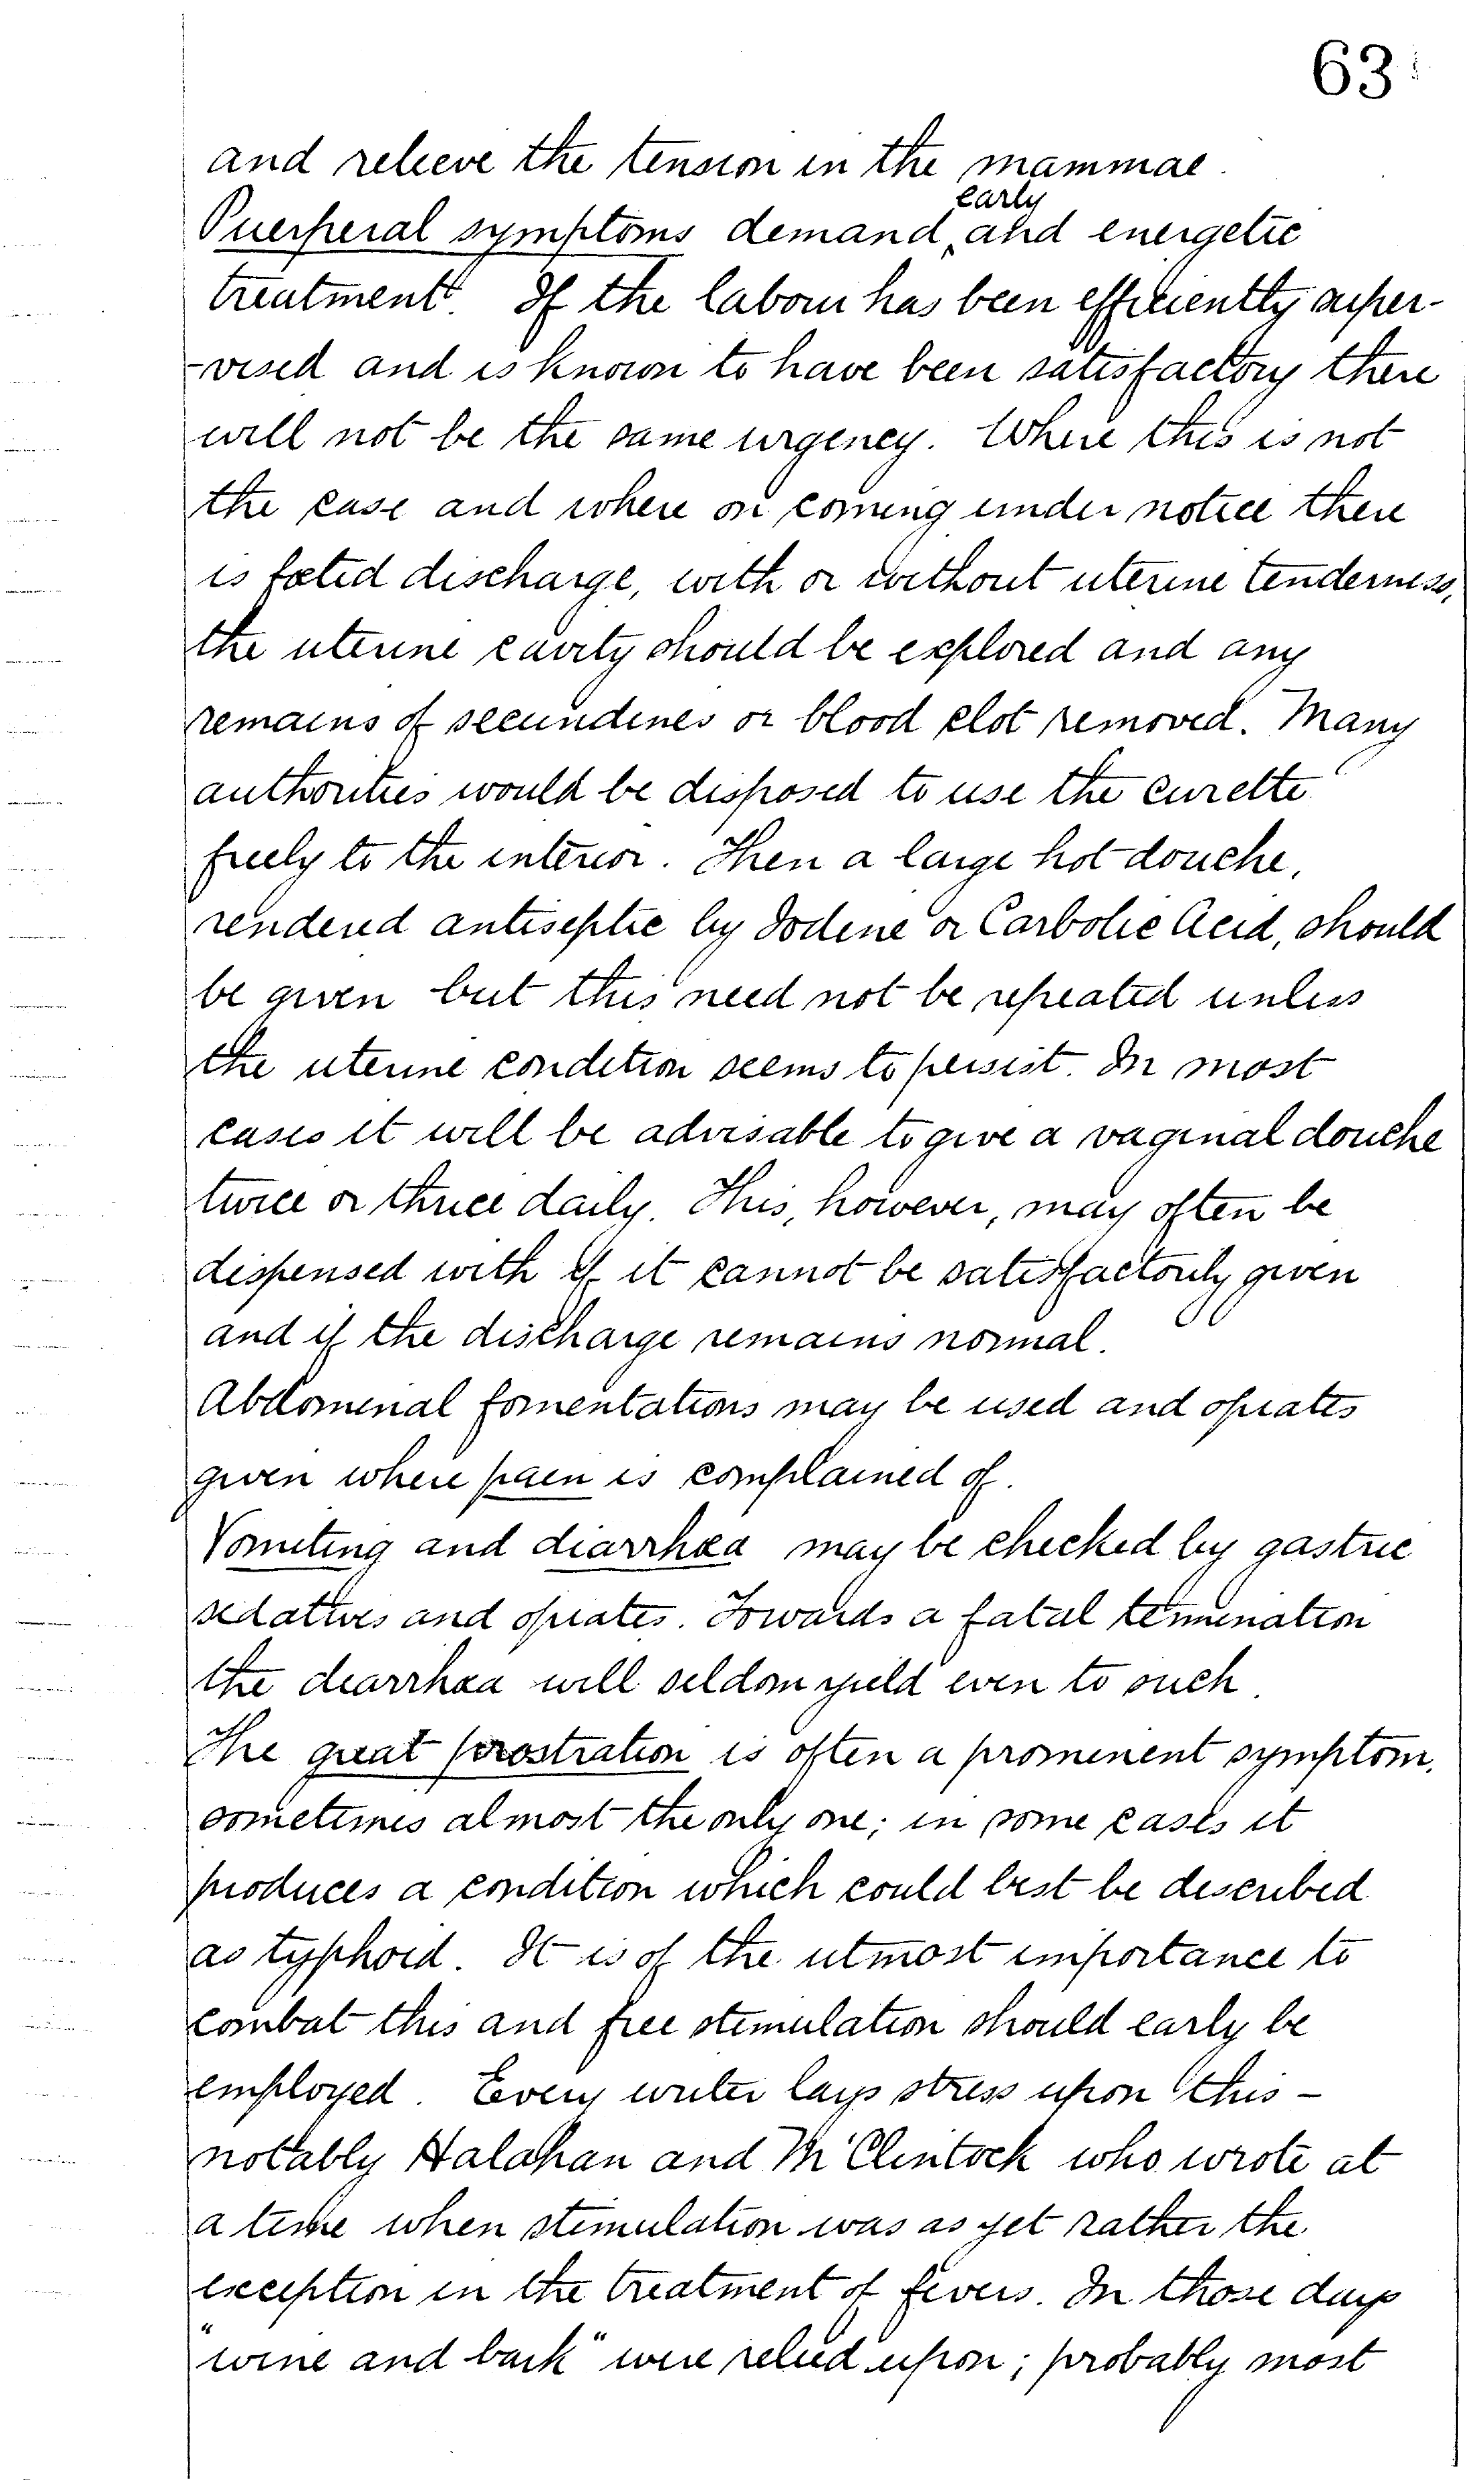 63
and relieve the tension in the mammae.
early
Puerperal symptoms demand ‸ and energetic
treatment. If the labour has been efficiently super-
-vised and is known to have been satisfactory there
will not be the same urgency. Where this is not
the case and where on coming under notice there
is fœtid discharge, with or without uterine tenderness,
the uterine cavity should be explored and any
remains of secundines or blood clot removed. Many
authorities would be disposed to use the curette
freely to the interior. Then a large hot douche,
rendered antiseptic by Iodine or Carbolic Acid, should
be given but this need not be repeated unless
the uterine condition seems to persist. In most
cases it will be advisable to give a vaginal douche
twice or thrice daily. This, however, may often be
dispensed with if it cannot be satisfactorily given
and if the discharge remains normal.
Abdominal fomentations may be used and opiates
given where pain is complained of.
Vomiting and diarrhœa may be checked by gastric
sedatives and opiates. Towards a fatal termination
the diarrhœa will seldom yield even to such.
The great prostration is often a prominent symptom,
sometimes almost the only one; in some cases it
produces a condition which could best be described
as typhoid. It is of the utmost importance to
combat this and free stimulation should early be
employed. Every writer lays stress upon this -
notably Halahan and McClintock who wrote at
a time when stimulation was as yet rather the
exception in the treatment of fevers. In those days
"wine and bark" were relied upon; probably most